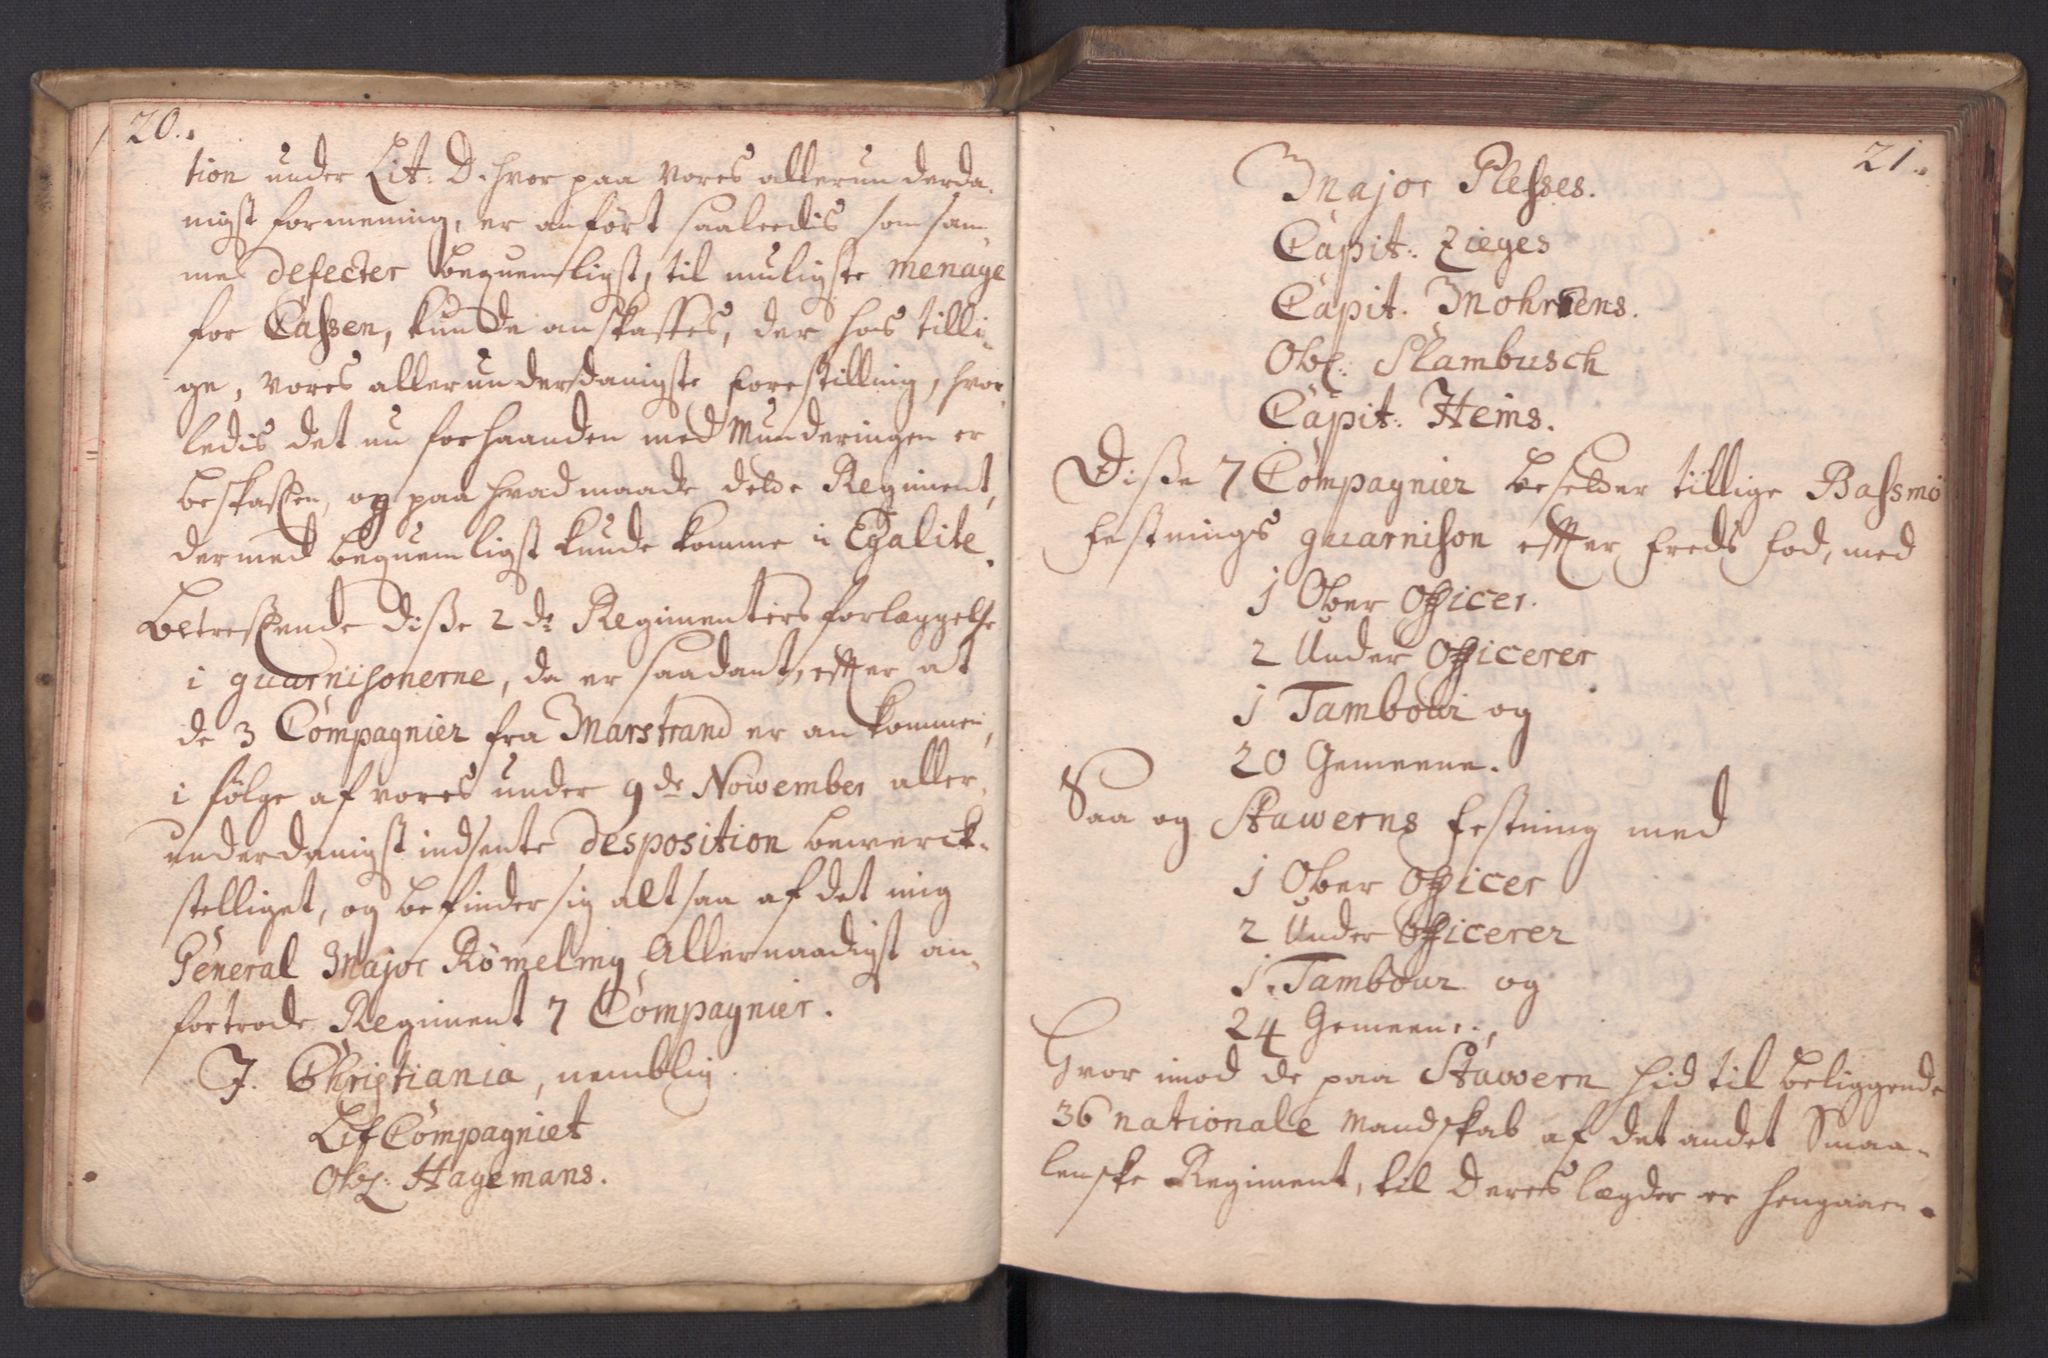 20.
tion under Lit: D. hvor paa vores allerunderda-
nigst formening, er anført saaleedis som sam-
mes defecter beqvemligst, til muligste menage
for Cassen, kunde anskaffes, der hos tilli-
ge, vores allerunderdanigste forestilling, hvor-
ledis det nu forhaanden med Munderingen er
beskaffen, og paa hvad maade dette Regiment,
dermed beqvemligst kunde komme i Egalite.
Betreffende disse 2de Regimenters forlæggelse
i guarnisonerne, da er saadant, efter at
de 3 Compagnier fra Marstrand er ankommen,
i følge af vores under 9de November aller-
underdanigst indsente desposition bewerck-
stelliget, og befinder sig altsaa af det mig
General Major Römeling Allernaadigst an-
fortrode Regiment 7 Compagnier.
J. Christiania, nemblig.
Lif Compagniet
Obl: Hagemans.
21.
Major Plesses.
Capit: Zieges
Capit. Mohrsens.
Obl: Slambusch
Capit: Heins.
Disse 7 Compagnier besetter tillige Bassmø
festnings guarnison effter freds fod, med
1 Ober Officer.
2 Under Officerer
1 Tambour og
20 Gemeene.
Saa og Stawerns festning med
1 Ober Officer
2 Under Officerer
1. Tambour og
24 Gemeene.
Hvor imod de paa Stawern hid til beliggende
36 nationale Mandskab af det andet Smaa-
lenske Regiment, til deres lægder er hengaaen.